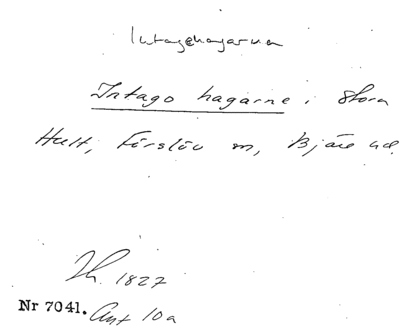 Intagehagarna
Intago hagarne i Stora
Hult, Förslöv sn, Bjäre hd.
Th. 1827
Nr 7041. Ant 10a